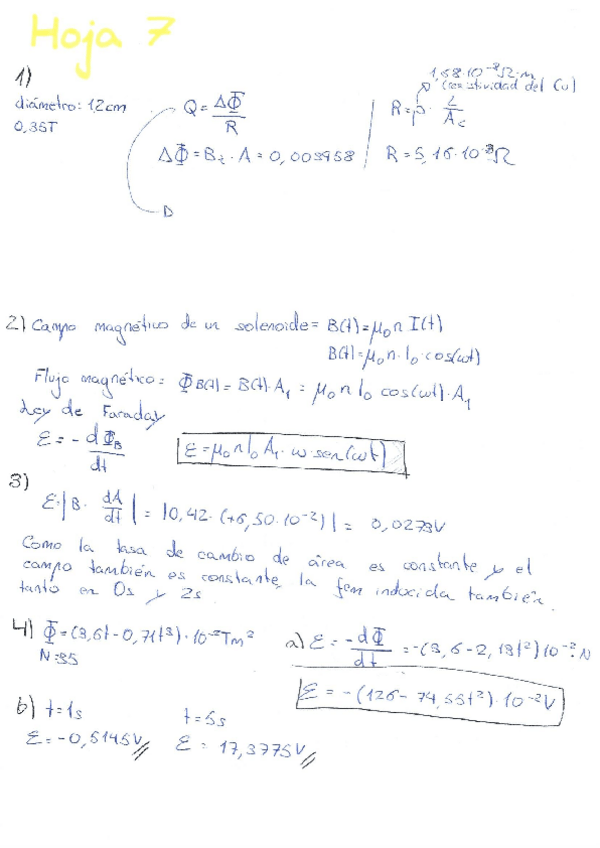 Hoja 7
1)
diámetro: 12cm
0,35T
Q = ΔΦ / R
ΔΦ = B₂ · A = 0,003958
1,68·10⁻⁸ Ω·m
(resistividad del Cu)
R = ρ · L / A_c
R = 5,16·10⁻³ Ω
2) Campo magnético de un solenoide = B(t) = μ₀ n I(t)
B(t) = μ₀ n · I₀ · cos(ωt)
Flujo magnético = Φ B(t) = B(t) · A₁ = μ₀ n I₀ cos(ωt) · A₁
Ley de Faraday
ε = - dΦ_B / dt
ε = μ₀ n I₀ A₁ · ω sen(ωt)
3)
ε = |B · dA/dt| = |0,42 · (+6,50·10⁻²)| = 0,0273V
Como la tasa de cambio de área es constante y el
campo también es constante, la fem inducida también.
tanto en 0s y 2s
4) Φ = (3,6t - 0,71t³) · 10⁻² Tm²
N = 35
a) ε = -dΦ / dt = -(3,6 - 2,13t²) 10⁻² · N
ε = -(126 - 74,55t²) · 10⁻² V
b) t = 1s
ε = -0,5145V
t = 5s
ε = 17,3775V